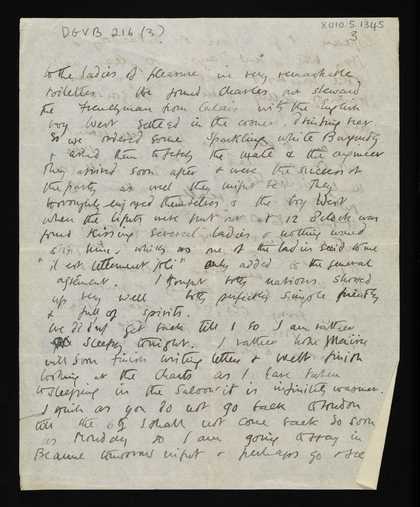 DGVB 216 (3)
X010.5.1345
3
to the ladies of pleasure in very remarkable
toilettes. We found Charles our steward
the Frenchman from Calais with the English
boy West settled in the corner drinking beer
So we ordered some sparkling white Burgundy
& asked them to fetch the mate & the engineer
They arrived soon after & were the success of
the party as well they might be. They
thoroughly enjoyed themselves & the boy West
when the lights were put out at 12 o'clock was
found kissing several ladies & nothing would
him, which as one of the ladies said to me
"il est tellement joli" only added to the general
. I thought both nations showed
up very well both perfectly simple friendly
& full of spirits.
We didnt get back till 1 so I am rather
sleepy tonight. I rather hope Maisie
will soon finish writing letters & will finish
looking at the charts as I have taken
to sleeping in the saloon it is infinitely warmer.
I much as you do not go back to London
till the 6th I shall not come back so soon
as Monday so I am going to stay in
Beaune tomorrow night & perhaps go & see